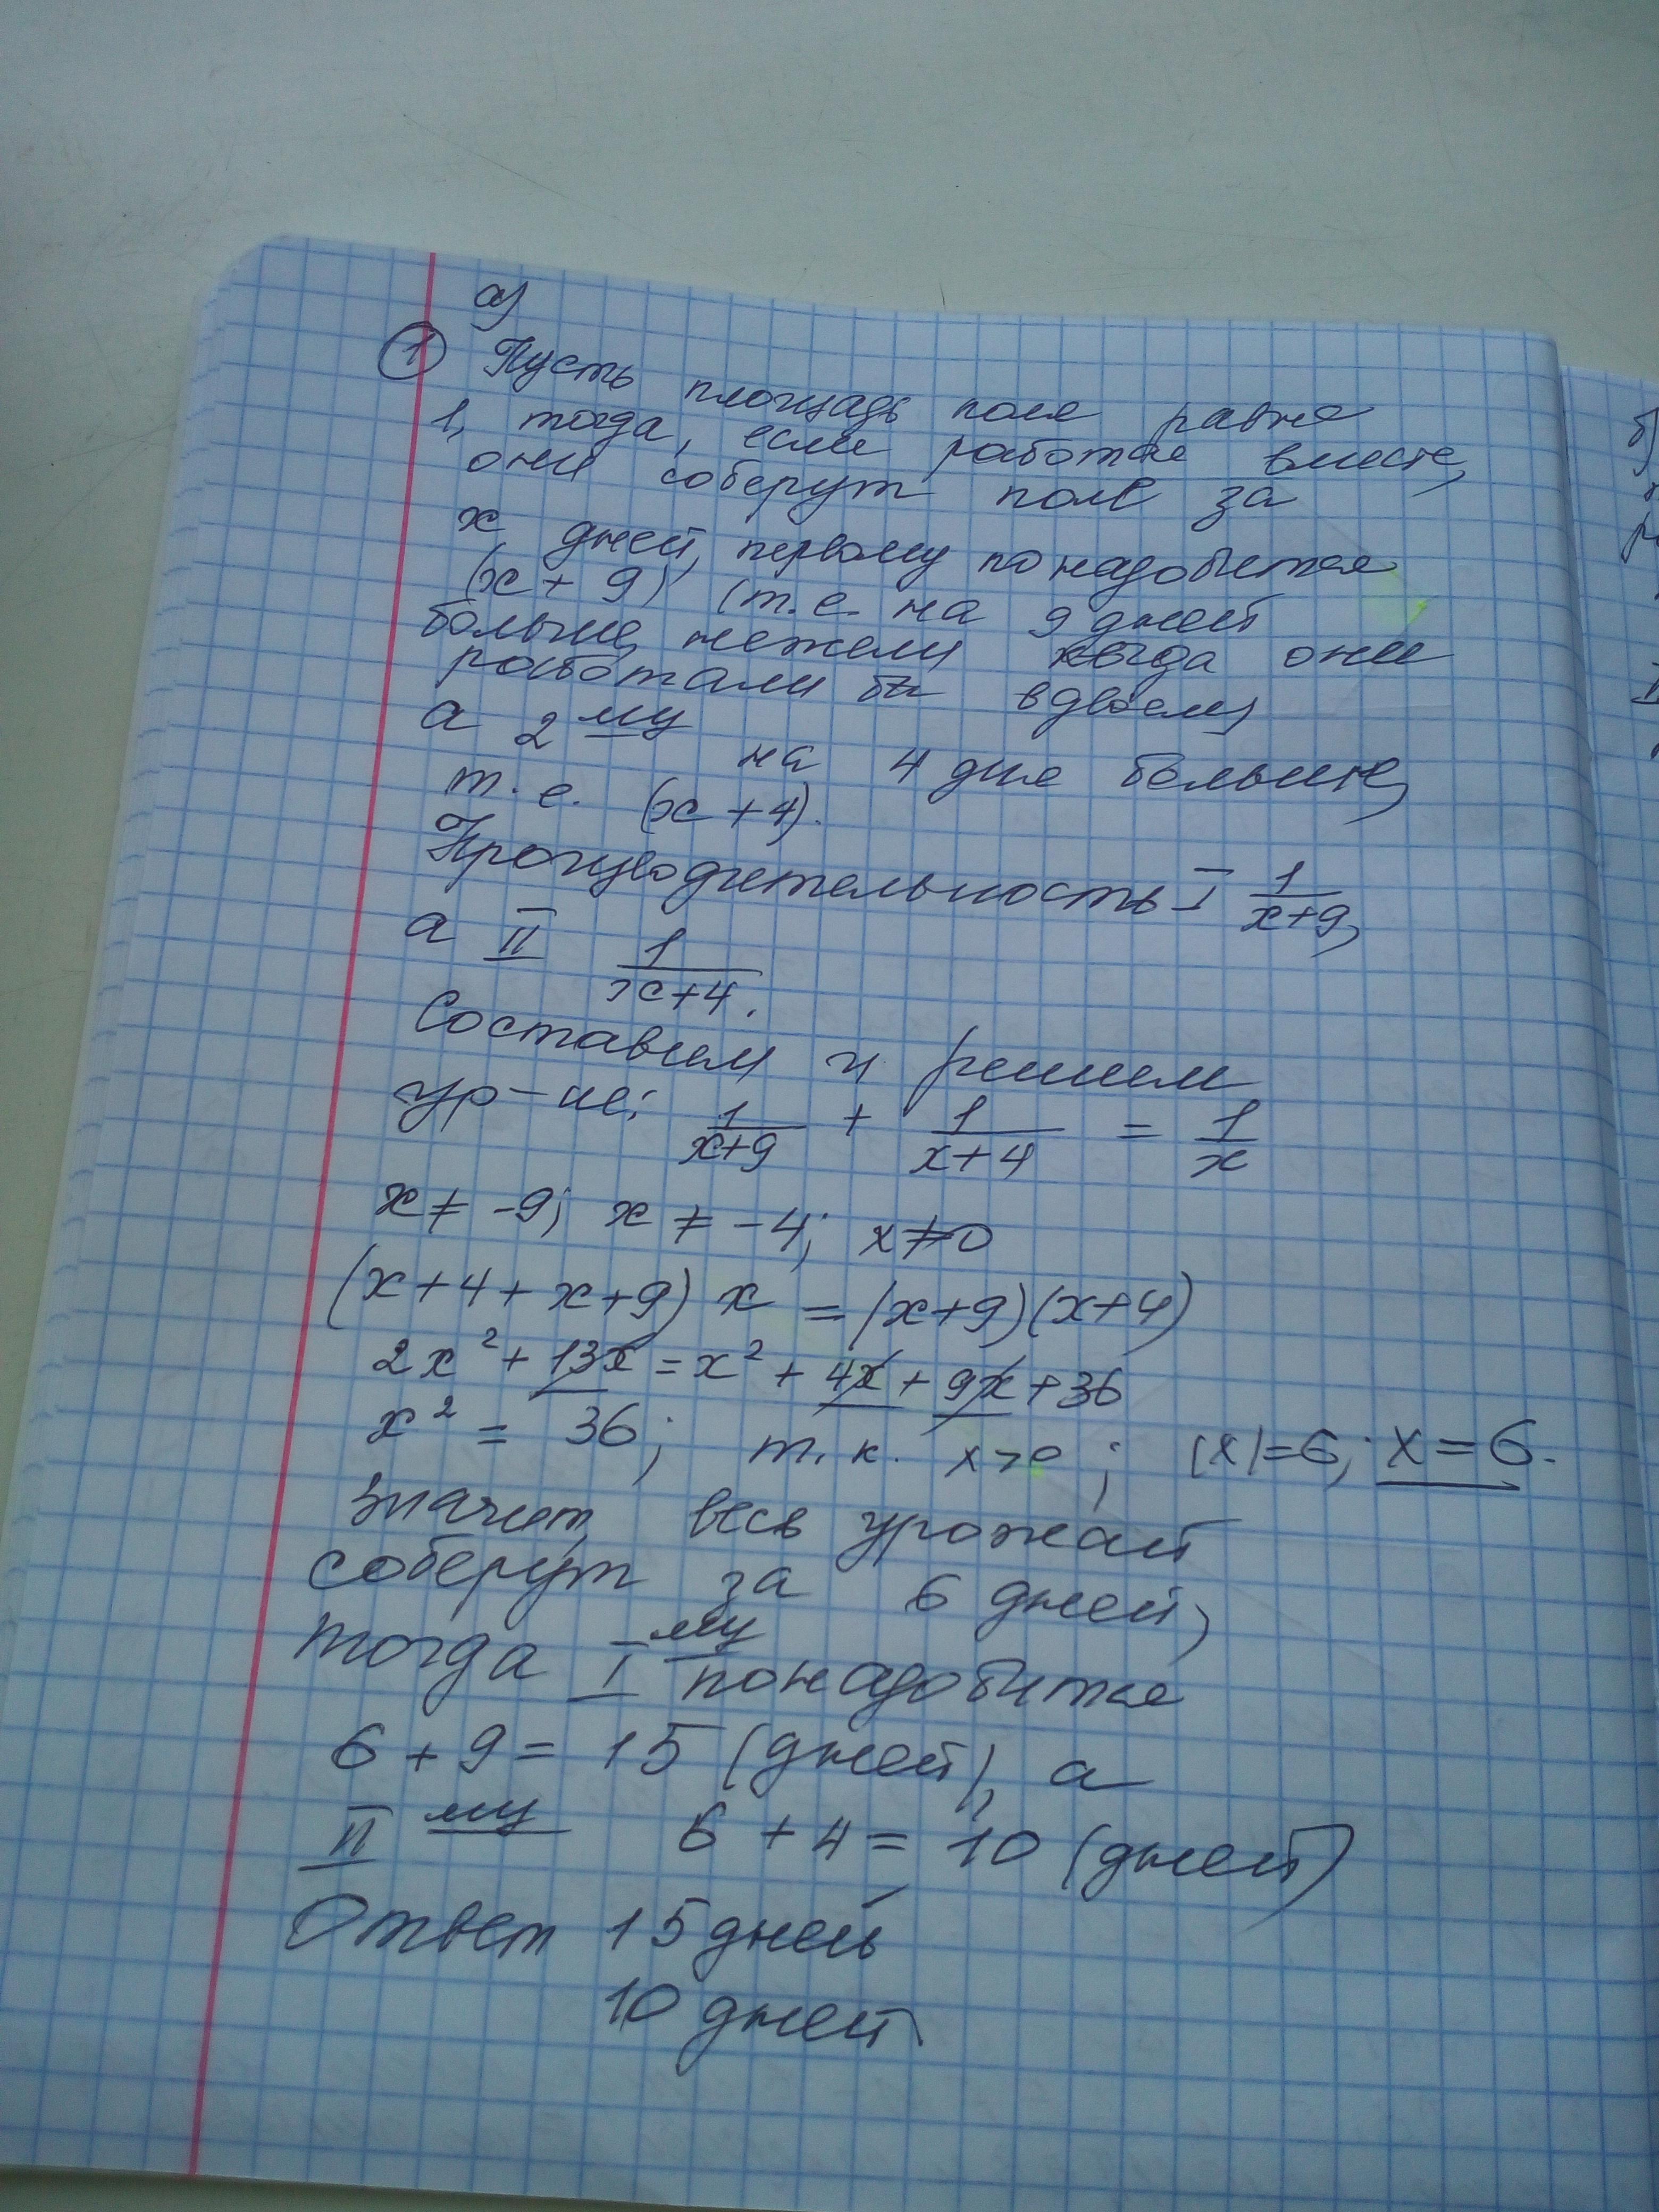 а)
① Пусть площадь поля равна
1, тогда, если работая вместе,
они соберут поле за
x дней, первому понадобится
(x + 9) (т.е. на 9 дней
больше, нежели когда они
работали бы вдвоем,
а 2 му на 4 дня больше,
т.е. (x + 4).
Производительность I 1/(x+9),
а II 1/(x+4).
Составим и решим
ур-ие: 1/(x+9) + 1/(x+4) = 1/x
x ≠ -9; x ≠ -4; x ≠ 0
(x + 4 + x + 9) x = (x+9)(x+4)
2x² + 13x = x² + 4x + 9x + 36
x² = 36; т.к. x > 0; |x| = 6; x = 6.
Значит, весь урожай
соберут за 6 дней,
тогда I му понадобится
6 + 9 = 15 (дней), а
II му 6 + 4 = 10 (дней)
Ответ 15 дней
10 дней.
б)